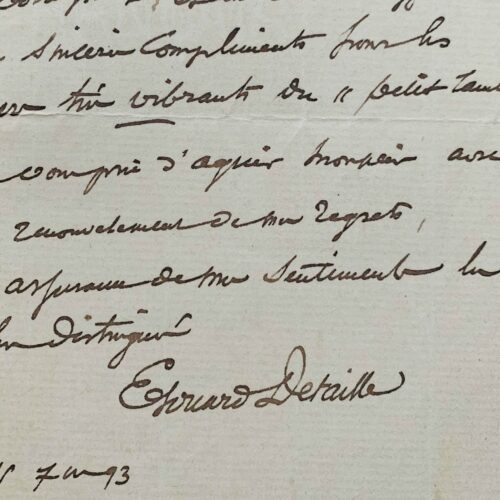 sincères compliments pour les
très vibrants du " petit Tam
vous prie d'agréer Monsieur avec
renouvelement de mes regrets,
assurance de mes sentiments les
plus distingués
Edouard Detaille
93